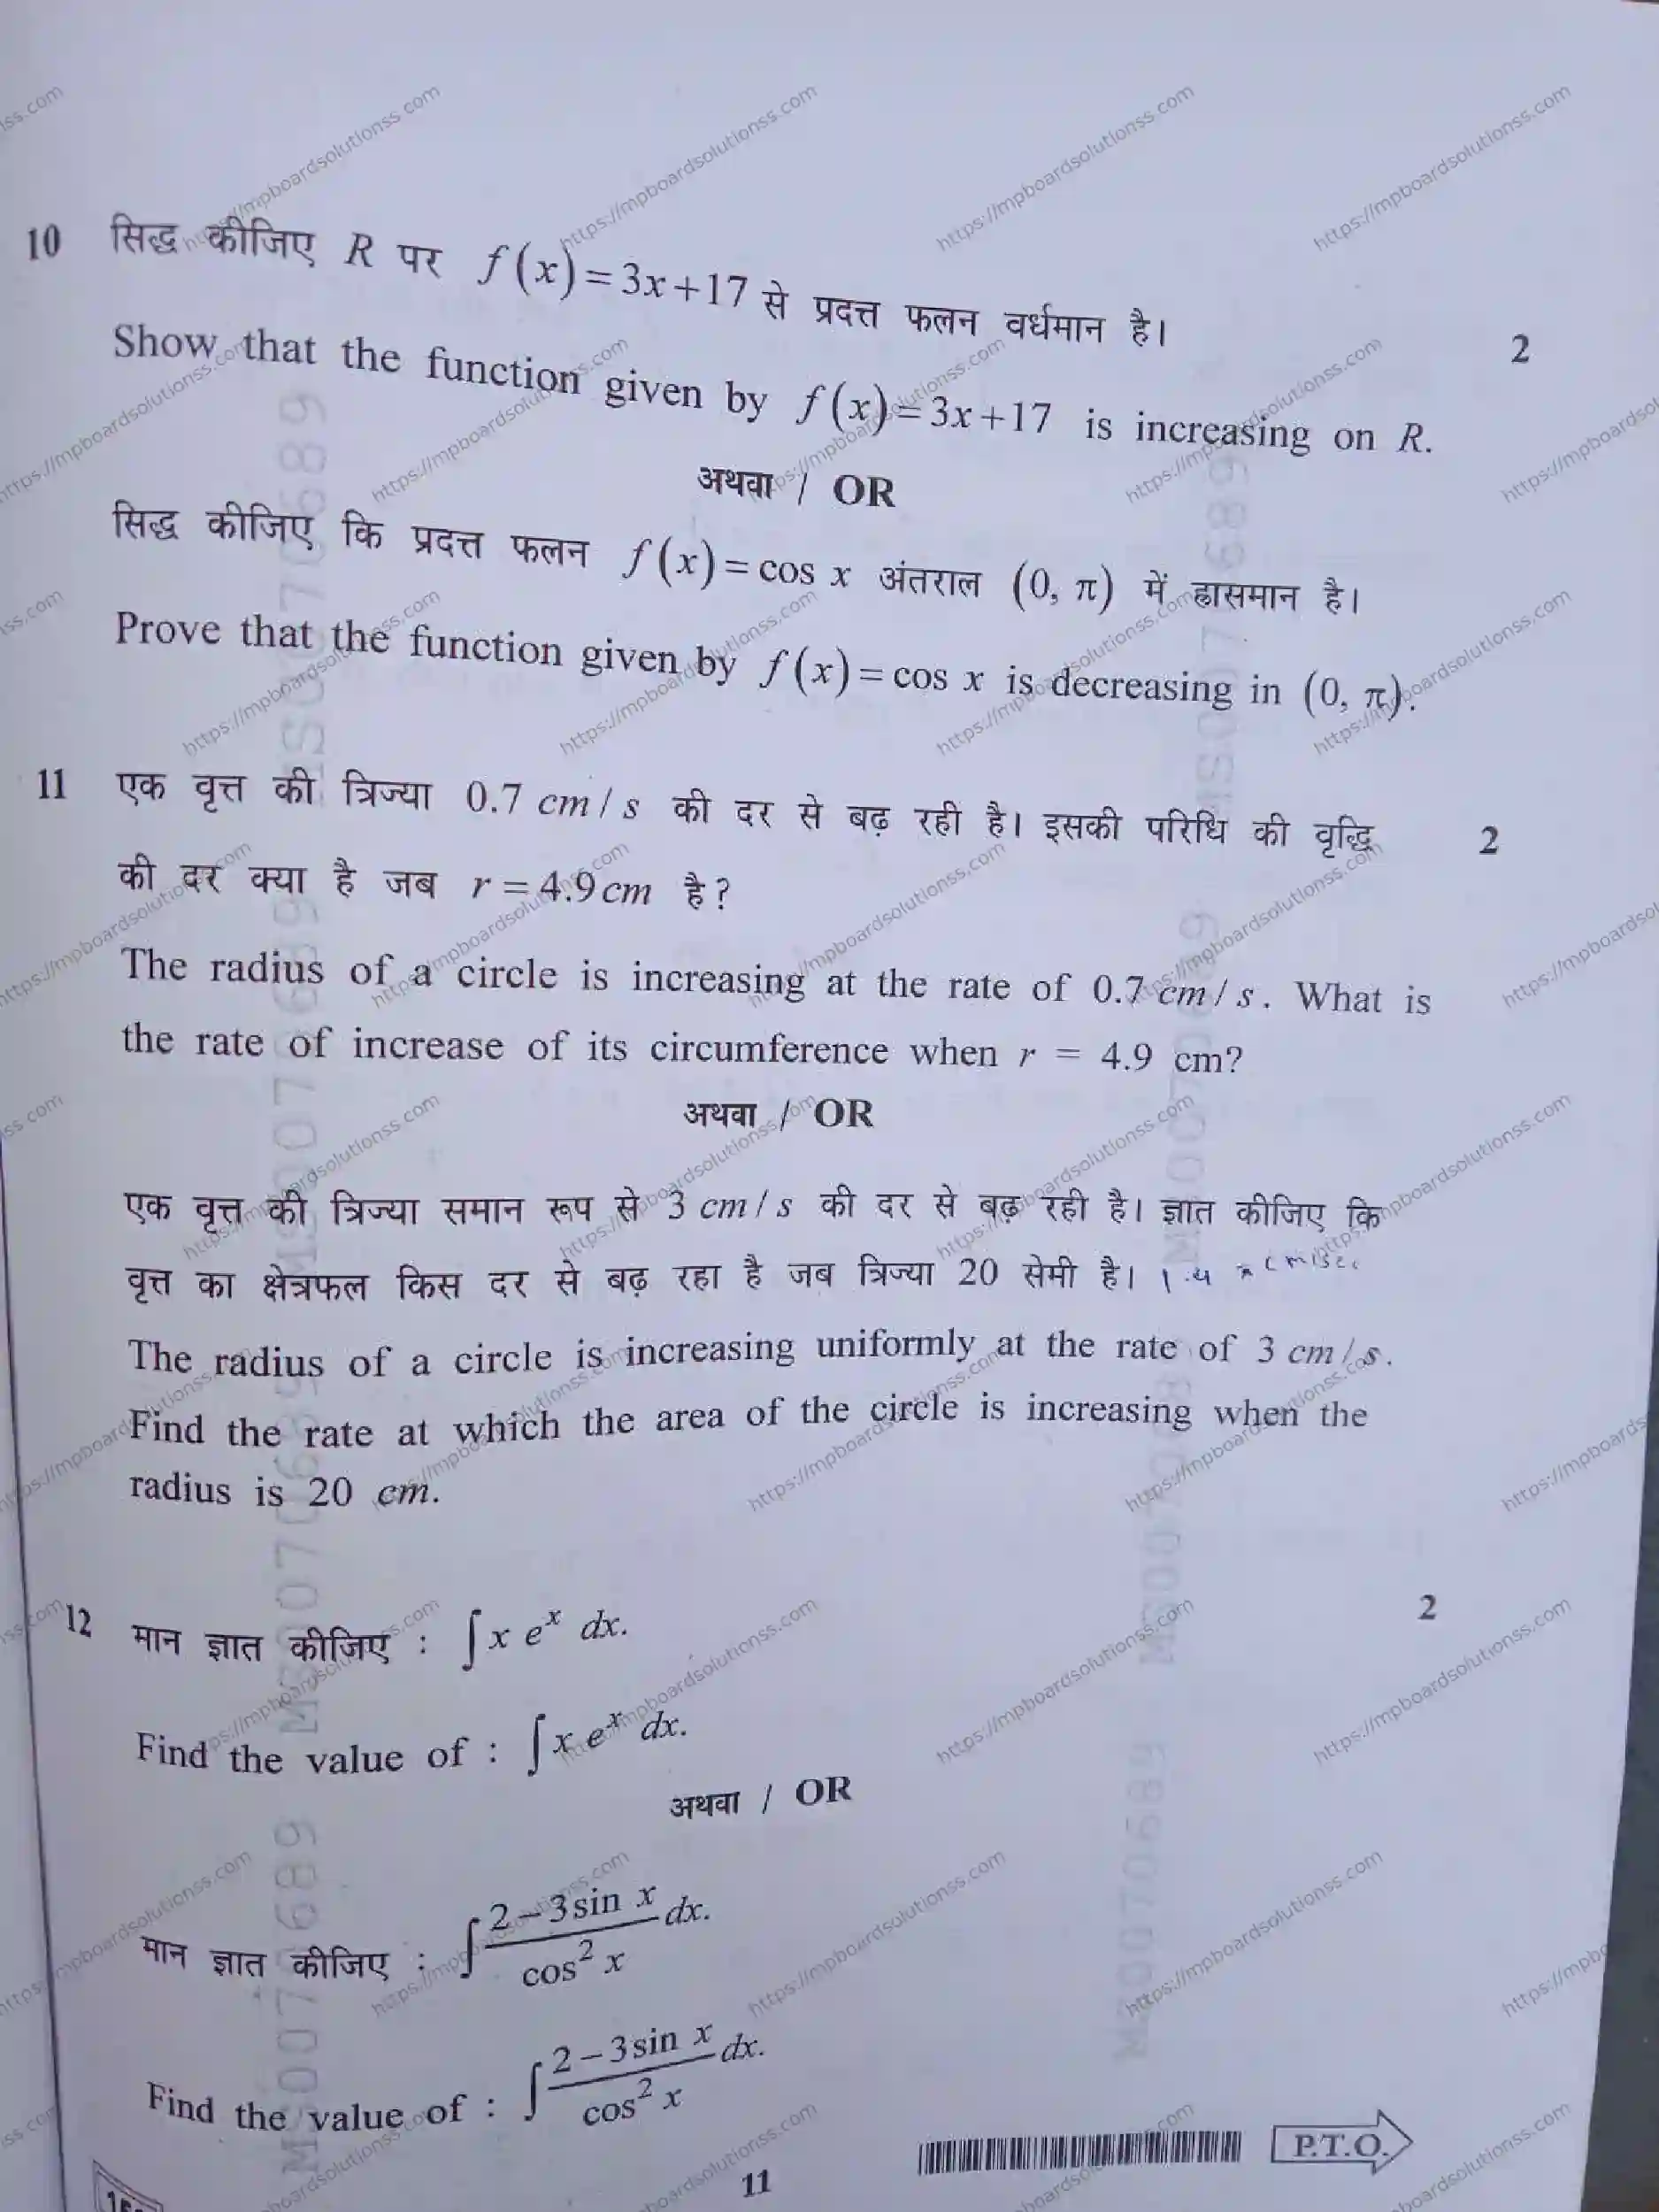 10 सिद्ध कीजिए R पर f(x)=3x+17 से प्रदत्त फलन वर्धमान है।
2
Show that the function given by f(x)=3x+17 is increasing on R.
अथवा / OR
सिद्ध कीजिए कि प्रदत्त फलन f(x)=cos x अंतराल (0, π) में ह्रासमान है।
Prove that the function given by f(x)=cos x is decreasing in (0, π).
11 एक वृत्त की त्रिज्या 0.7 cm/s की दर से बढ़ रही है। इसकी परिधि की वृद्धि 2
की दर क्या है जब r=4.9cm है?
The radius of a circle is increasing at the rate of 0.7 cm/s. What is
the rate of increase of its circumference when r = 4.9 cm?
अथवा / OR
एक वृत्त की त्रिज्या समान रूप से 3 cm/s की दर से बढ़ रही है। ज्ञात कीजिए कि
वृत्त का क्षेत्रफल किस दर से बढ़ रहा है जब त्रिज्या 20 सेमी है। 1.4 π cm/sec
The radius of a circle is increasing uniformly at the rate of 3 cm/s.
Find the rate at which the area of the circle is increasing when the
radius is 20 cm.
12 मान ज्ञात कीजिए : ∫x eˣ dx. 2
Find the value of : ∫x eˣ dx.
अथवा / OR
मान ज्ञात कीजिए : ∫(2−3sin x)/(cos² x) dx.
Find the value of : ∫(2−3sin x)/(cos² x) dx.
11
P.T.O.
https://mpboardsolutionss.com